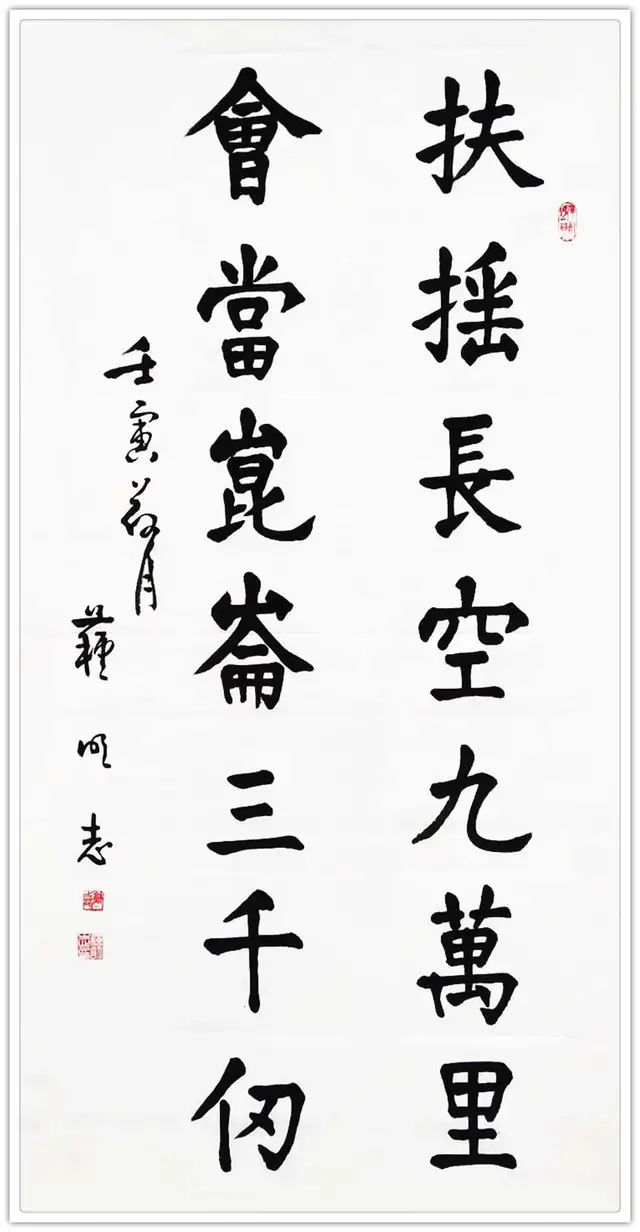 扶摇長空九萬里
會當崑崙三千仞
壬寅荷月
明志